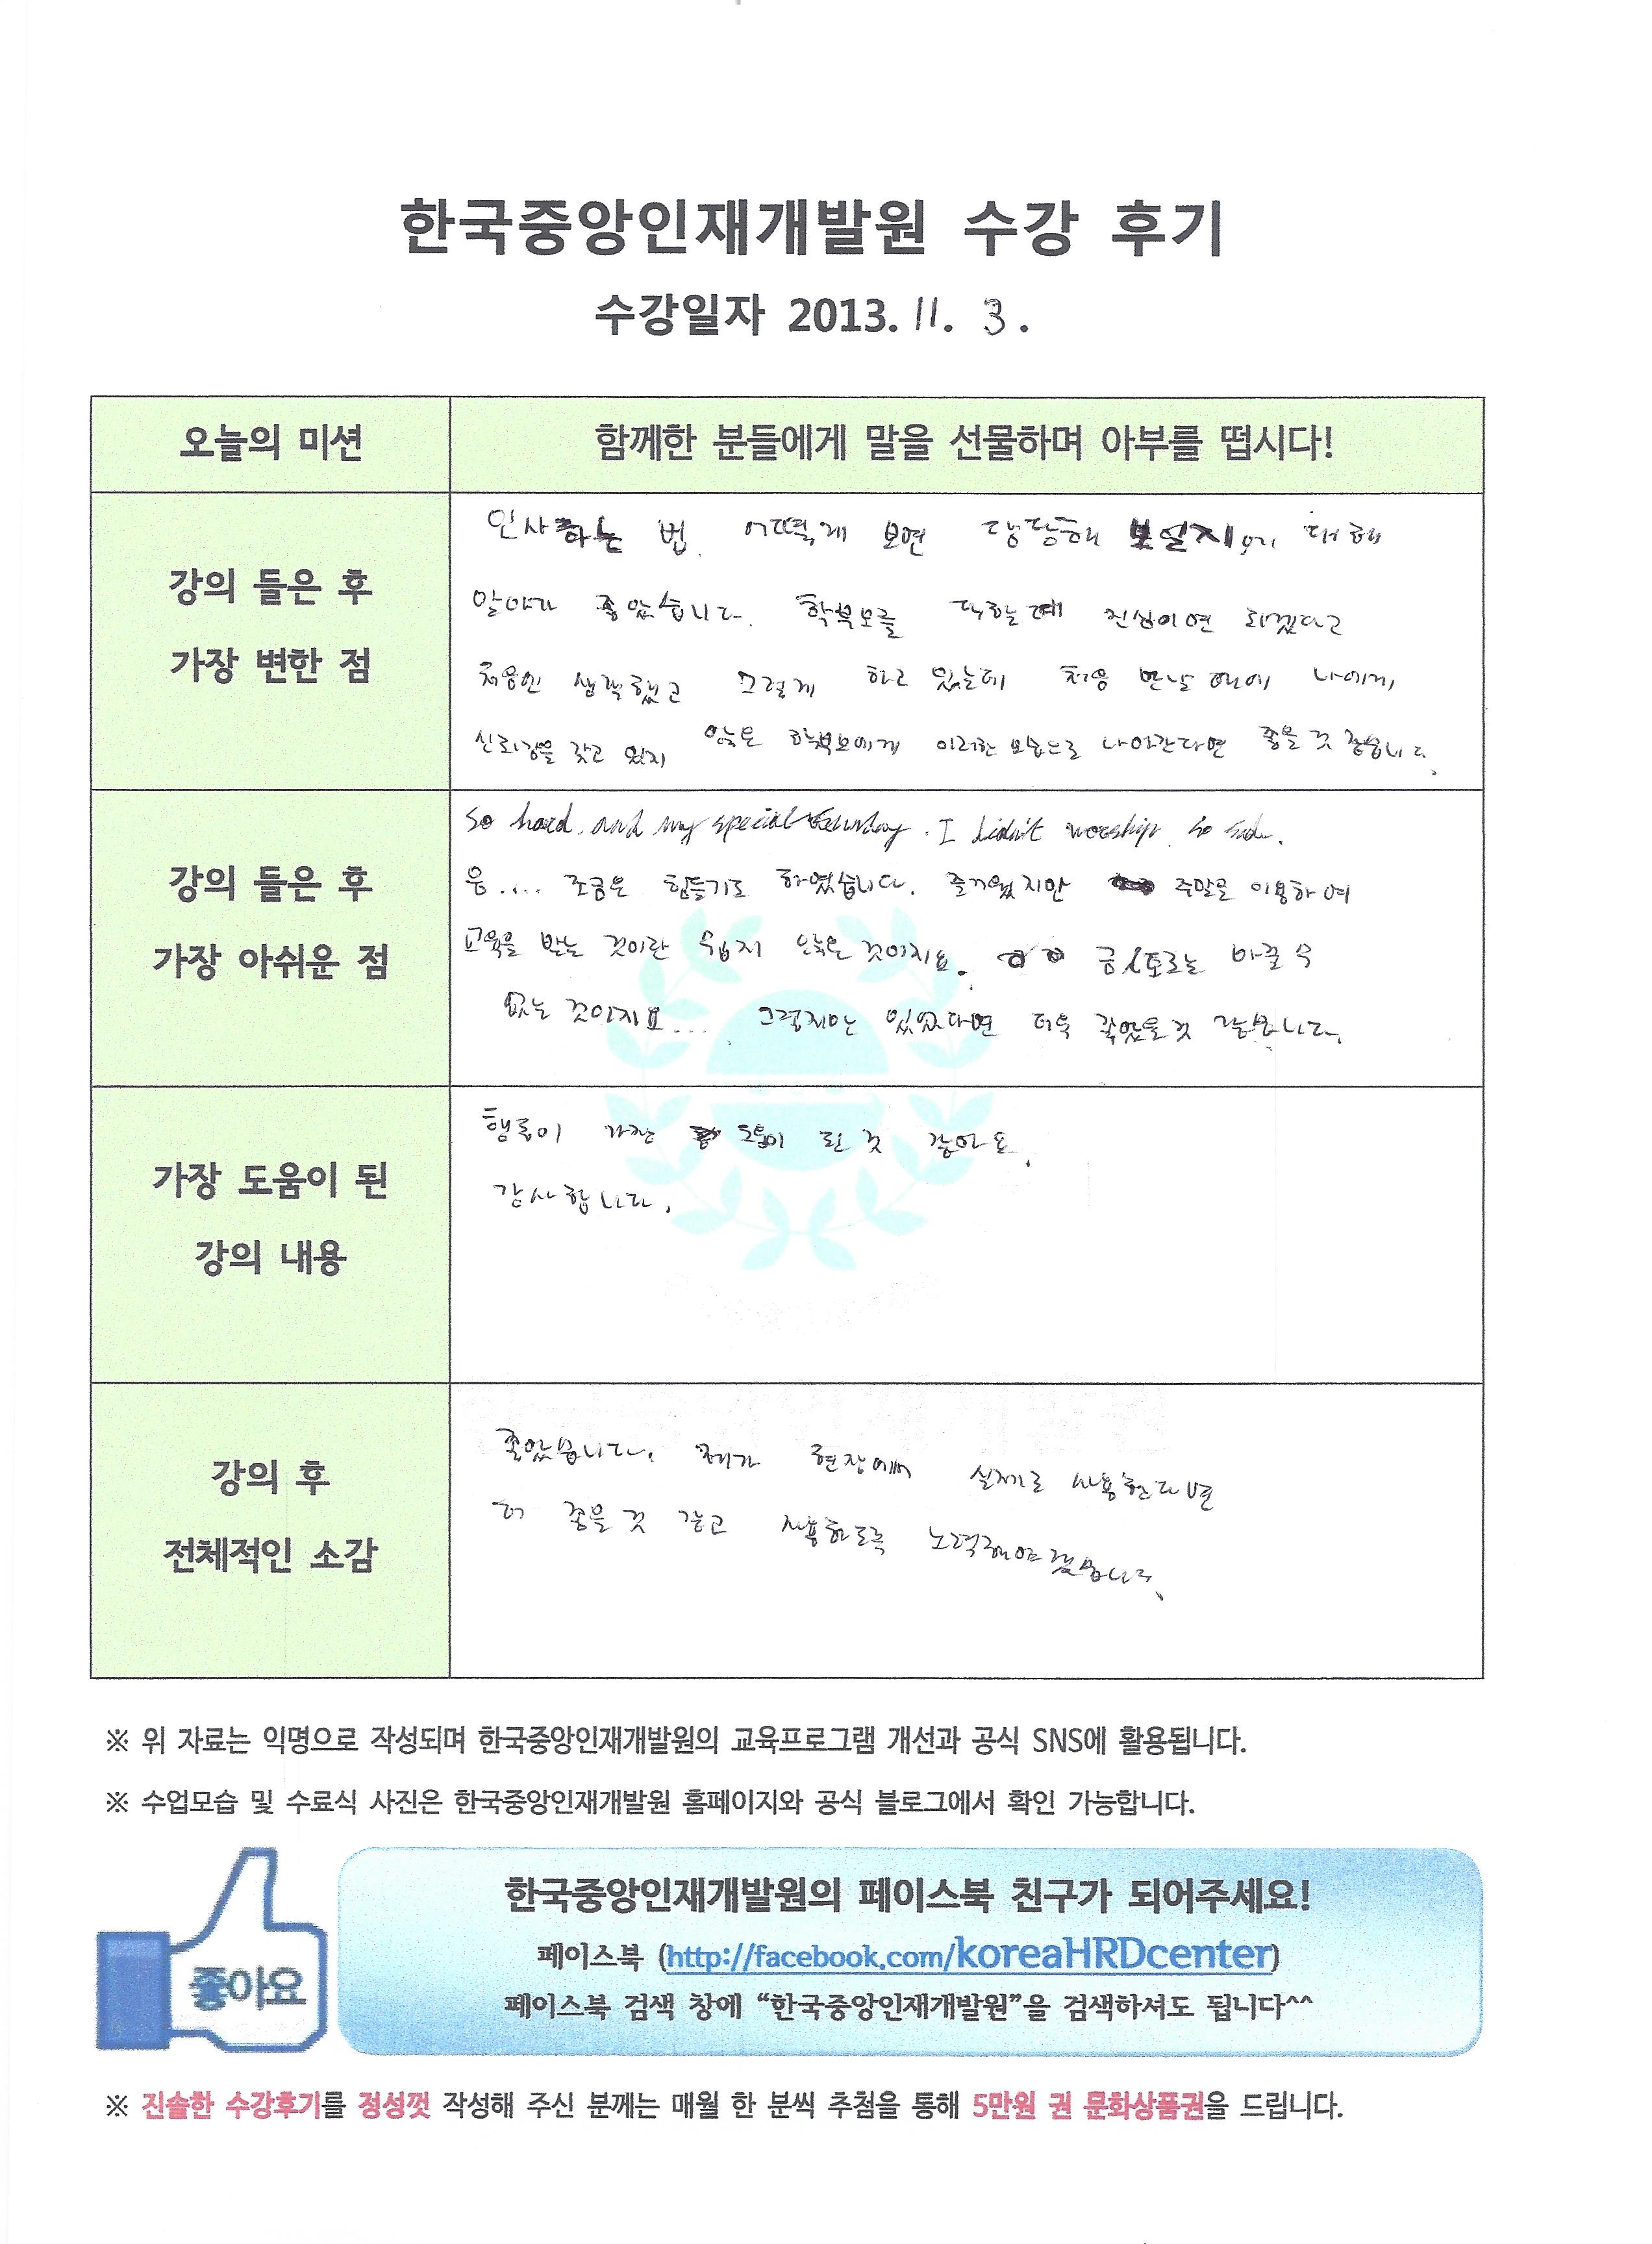 한국중앙인재개발원 수강 후기
수강일자 2013. 11. 3.
오늘의 미션
함께한 분들에게 말을 선물하며 아부를 떱시다!
강의 들은 후
가장 변한 점
인사하는 법. 어떻게 보면 당당해 보일지에 대해
알아가 좋았습니다. 학부모를 대하는데 진심이면 되겠다고
처음엔 생각했고 그렇게 하고 있는데 처음 만날 때에 나에게
신뢰감을 갖고 있지 않은 학부모에게 이러한 모습으로 나아간다면 좋을 것 같습니다.
강의 들은 후
가장 아쉬운 점
So hard. and my special Saturday. I didn't worship. so sad.
음.... 조금은 힘들기도 하였습니다. 즐거웠지만 주말을 이용하여
교육을 받는 것이란 쉽지 않은 것이지요. 금/토로는 바꿀 수
없는 것이지요... 그렇지만 있었다면 더욱 좋았을것 같습니다.
가장 도움이 된
강의 내용
행동이 가장 도움이 된 것 같아요.
감사합니다.
강의 후
전체적인 소감
좋았습니다. 제가 현장에서 실제로 사용한다면
더 좋을것 같고 사용하도록 노력해야겠습니다.
※ 위 자료는 익명으로 작성되며 한국중앙인재개발원의 교육프로그램 개선과 공식 SNS에 활용됩니다.
※ 수업모습 및 수료식 사진은 한국중앙인재개발원 홈페이지와 공식 블로그에서 확인 가능합니다.
좋아요
한국중앙인재개발원의 페이스북 친구가 되어주세요!
페이스북 (http://facebook.com/koreaHRDcenter)
페이스북 검색 창에 “한국중앙인재개발원”을 검색하셔도 됩니다^^
※ 진솔한 수강후기를 정성껏 작성해 주신 분께는 매월 한 분씩 추첨을 통해 5만원 권 문화상품권을 드립니다.